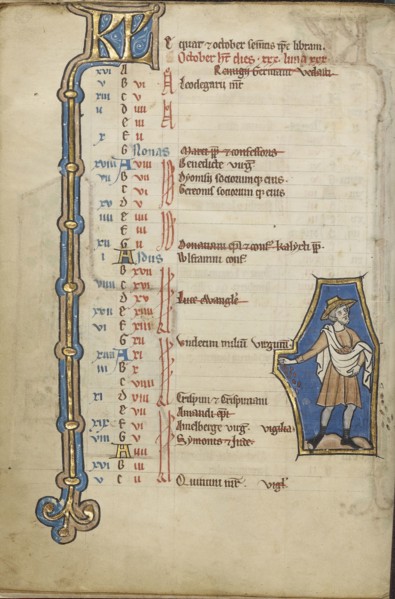 KL Equat & october semis tpe libram.
October ht dies xxx. luna xxx
xvi A Remigii Germani Vedasti
v B vi Leodegarii mr
xiii C v
ii d iiii
e iii
x f ii
G Nonas Marci pp & confessoris
xviii A viii Benedicte virg
vii B vii Dyonisii sociorumq eius
C vi Gereonis sociorumq eius
xv d v
iiii e iiii
f iii
xii G ii Donatiani epi & conf. kalixti pp.
i A Idus Wlframni conf
B xvii
viiii C xvi
d xv Luce evangl
xvii e xiiii
vi f xiii
G xii Undecim milium virginum
xiiii A xi
iii B x
C viiii
xi d viii Crispini & Crispiniani
e vii Amandi epi
xix f vi Amelberge virg vigilia
viii G v Symonis & Iude
A iiii
xvi B iii
v C ii Quintini mr. vigl